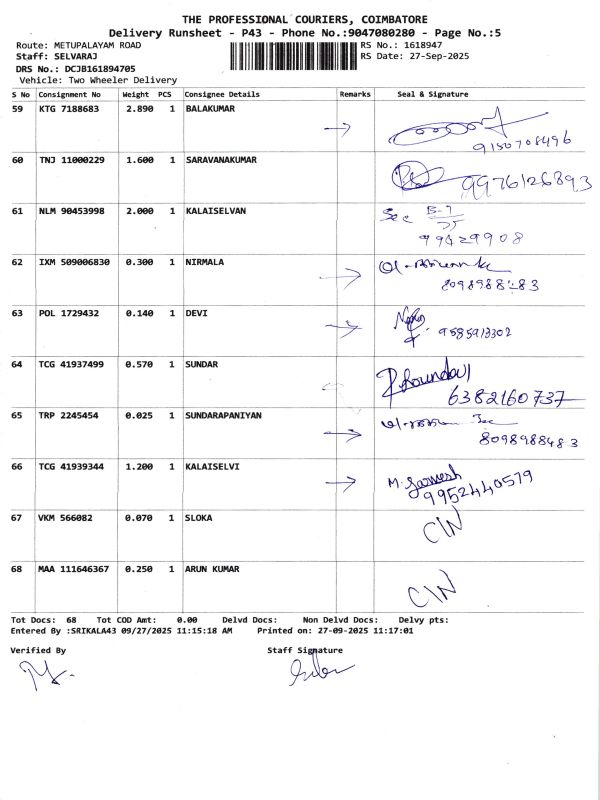 THE PROFESSIONAL COURIERS, COIMBATORE
Delivery Runsheet - P43 - Phone No.:9047080280 - Page No.:5
Route: METUPALAYAM ROAD RS No.: 1618947
Staff: SELVARAJ RS Date: 27-Sep-2025
DRS No.: DCJB161894705
Vehicle: Two Wheeler Delivery
S No Consignment No Weight PCS Consignee Details Remarks Seal & Signature
59 KTG 7188683 2.890 1 BALAKUMAR
9150708496
60 TNJ 11000229 1.600 1 SARAVANAKUMAR
9976126893
61 NLM 90453998 2.000 1 KALAISELVAN Sec
99429908
62 IXM 509006830 0.300 1 NIRMALA
63 POL 1729432 0.140 1 DEVI
9585913302
64 TCG 41937499 0.570 1 SUNDAR
6382160737
65 TRP 2245454 0.025 1 SUNDARAPANIYAN
8098988483
66 TCG 41939344 1.200 1 KALAISELVI
9952440579
67 VKM 566082 0.070 1 SLOKA CIN
68 MAA 111646367 0.250 1 ARUN KUMAR CIN
Tot Docs: 68 Tot COD Amt: 0.00 Delvd Docs: Non Delvd Docs: Delvy pts:
Entered By :SRIKALA43 09/27/2025 11:15:18 AM Printed on: 27-09-2025 11:17:01
Verified By Staff Signature